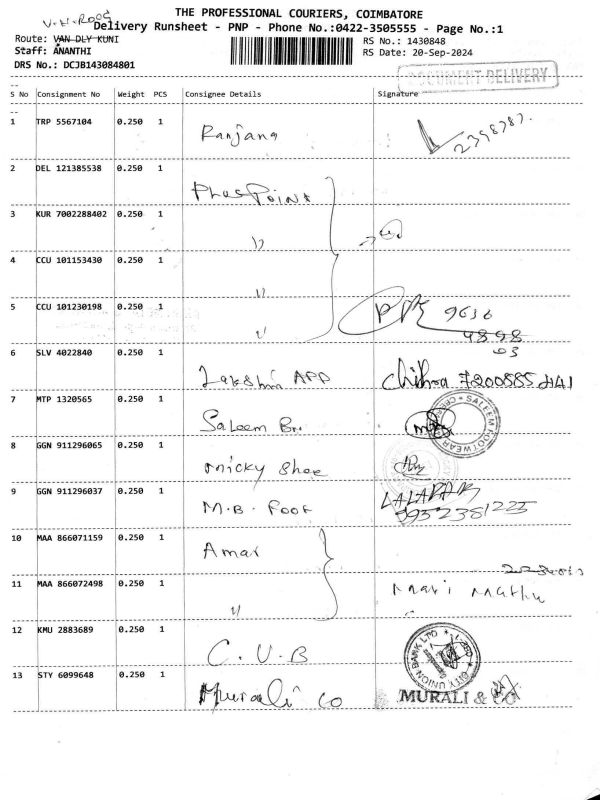 THE PROFESSIONAL COURIERS, COIMBATORE
Delivery Runsheet - PNP - Phone No.:0422-3505555 - Page No.:1
Route: VAN DLY KUNI
RS No.: 1430848
Staff: ANANTHI
RS Date: 20-Sep-2024
DRS No.: DCJB143084801
DOCUMENT DELIVERY
--
S No Consignment No Weight PCS Consignee Details Signature
--
1 TRP 5567104 0.250 1 Ranjana
2 DEL 121385538 0.250 1 PhosPoint
3 KUR 7002288402 0.250 1 "
4 CCU 101153430 0.250 1 "
5 CCU 101230198 0.250 1 " 9636
9898
03
6 SLV 4022840 0.250 1 Lakshmi APP Chitra 7200885241
7 MTP 1320565 0.250 1 Saleem Br. SALEEM FOOTWEAR
8 GGN 911296065 0.250 1 micky Shoe
9 GGN 911296037 0.250 1 M.B. Foot LALARAM
9952381225
10 MAA 866071159 0.250 1 Amar
11 MAA 866072498 0.250 1 " Mari Muthu
12 KMU 2883689 0.250 1 C.U.B CITY UNION BANK LTD
13 STY 6099648 0.250 1 Murali Co MURALI & CO